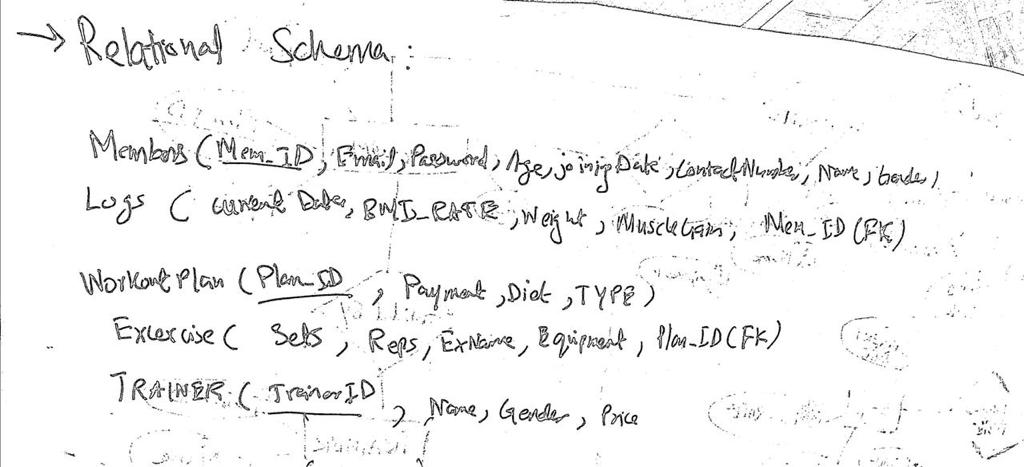 → Relational Schema :
Members ( Mem_ID, Email, Password, Age, joining Date, Contact Number, Name, Gender )
Logs ( current Date, BMI_RATE, Weight, Muscle Gain, Mem_ID (FK)
Workout Plan ( Plan_ID, Payment, Diet, TYPE )
Excercise ( Sets, Reps, ExName, Equipment, Plan_ID (FK)
TRAINER ( TrainerID, Name, Gender, Price